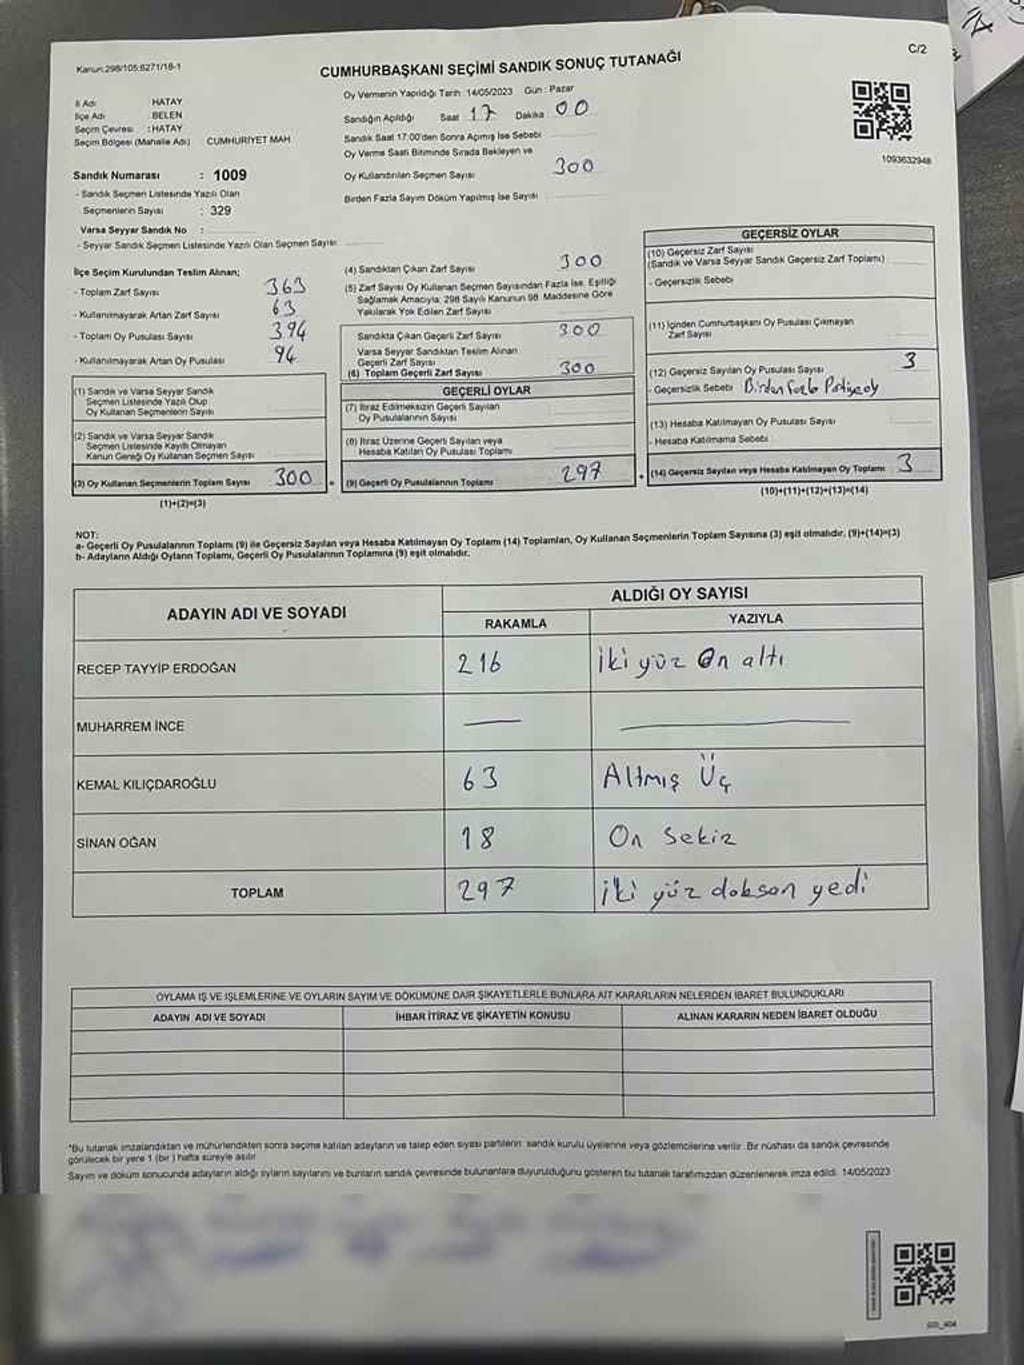 Kanun:298/105:6271/18-1
CUMHURBAŞKANI SEÇİMİ SANDIK SONUÇ TUTANAĞI
C/2
İl Adı HATAY
İlçe Adı BELEN
Seçim Çevresi : HATAY
Seçim Bölgesi (Mahalle Adı) CUMHURİYET MAH
Sandık Numarası : 1009
- Sandık Seçmen Listesinde Yazılı Olan
Seçmenlerin Sayısı : 329
Varsa Seyyar Sandık No :
- Seyyar Sandık Seçmen Listesinde Yazılı Olan Seçmen Sayısı
Oy Vermenin Yapıldığı Tarih :14/05/2023 Gün : Pazar
Sandığın Açıldığı Saat 17 Dakika 00
Sandık Saat 17:00'den Sonra Açımış İse Sebebi
Oy Verme Saati Bitiminde Sırada Bekleyen ve
Oy Kullandırılan Seçmen Sayısı 300
Birden Fazla Sayım Döküm Yapılmış İse Sayısı
1093632948
İlçe Seçim Kurulundan Teslim Alınan;
- Toplam Zarf Sayısı 363
- Kullanılmayarak Artan Zarf Sayısı 63
- Toplam Oy Pusulası Sayısı 394
- Kullanılmayarak Artan Oy Pusulası 94
(1) Sandık ve Varsa Seyyar Sandık
Seçmen Listesinde Yazılı Olup
Oy Kullanan Seçmenlerin Sayısı
(2) Sandık ve Varsa Seyyar Sandık
Seçmen Listesinde Kayıtlı Olmayan
Kanun Gereği Oy Kullanan Seçmen Sayısı
(3) Oy Kullanan Seçmenlerin Toplam Sayısı 300
(1)+(2)=(3)
(4) Sandıktan Çıkan Zarf Sayısı 300
(5) Zarf Sayısı Oy Kullanan Seçmen Sayısından Fazla İse, Eşitliği
Sağlamak Amacıyla; 298 Sayılı Kanunun 98. Maddesine Göre
Yakılarak Yok Edilen Zarf Sayısı
Sandıkta Çıkan Geçerli Zarf Sayısı 300
Varsa Seyyar Sandıktan Teslim Alınan
Geçerli Zarf Sayısı
(6) Toplam Geçerli Zarf Sayısı 300
GEÇERLİ OYLAR
(7) İtiraz Edilmeksizin Geçerli Sayılan
Oy Pusulalarının Sayısı
(8) İtiraz Üzerine Geçerli Sayılan veya
Hesaba Katılan Oy Pusulası Toplamı
(9) Geçerli Oy Pusulalarının Toplamı 297
GEÇERSİZ OYLAR
(10) Geçersiz Zarf Sayısı
(Sandık ve Varsa Seyyar Sandık Geçersiz Zarf Toplamı)
- Geçersizlik Sebebi
(11) İçinden Cumhurbaşkanı Oy Pusulası Çıkmayan
Zarf Sayısı
(12) Geçersiz Sayılan Oy Pusulası Sayısı 3
- Geçersizlik Sebebi Birden fazla Partiye oy
(13) Hesaba Katılmayan Oy Pusulası Sayısı
- Hesaba Katılmama Sebebi
(14) Geçersiz Sayılan veya Hesaba Katılmayan Oy Toplamı 3
(10)+(11)+(12)+(13)=(14)
NOT:
a- Geçerli Oy Pusulalarının Toplamı (9) ile Geçersiz Sayılan veya Hesaba Katılmayan Oy Toplamı (14) Toplamları, Oy Kullanan Seçmenlerin Toplam Sayısına (3) eşit olmalıdır. (9)+(14)=(3)
b- Adayların Aldığı Oyların Toplamı, Geçerli Oy Pusulalarının Toplamına (9) eşit olmalıdır.
ADAYIN ADI VE SOYADI
ALDIĞI OY SAYISI
RAKAMLA YAZIYLA
RECEP TAYYİP ERDOĞAN 216 İki yüz On altı
MUHARREM İNCE — —
KEMAL KILIÇDAROĞLU 63 Altmış Üç
SİNAN OĞAN 18 On Sekiz
TOPLAM 297 İki yüz doksan yedi
OYLAMA İŞ VE İŞLEMLERİNE VE OYLARIN SAYIM VE DÖKÜMÜNE DAİR ŞİKAYETLERLE BUNLARA AİT KARARLARIN NELERDEN İBARET BULUNDUKLARI
ADAYIN ADI VE SOYADI İHBAR İTİRAZ VE ŞİKAYETİN KONUSU ALINAN KARARIN NEDEN İBARET OLDUĞU
*Bu tutanak imzalandıktan ve mühürlendikten sonra seçime katılan adayların ve talep eden siyasi partilerin sandık kurulu üyelerine veya gözlemcilerine verilir. Bir nüshası da sandık çevresinde
görülecek bir yere 1 (bir ) hafta süreyle asılır
Sayım ve döküm sonucunda adayların aldığı oyların sayılarını ve bunların sandık çevresinde bulunanlara duyurulduğunu gösteren bu tutanak tarafımızdan düzenlenerek imza edildi. 14/05/2023